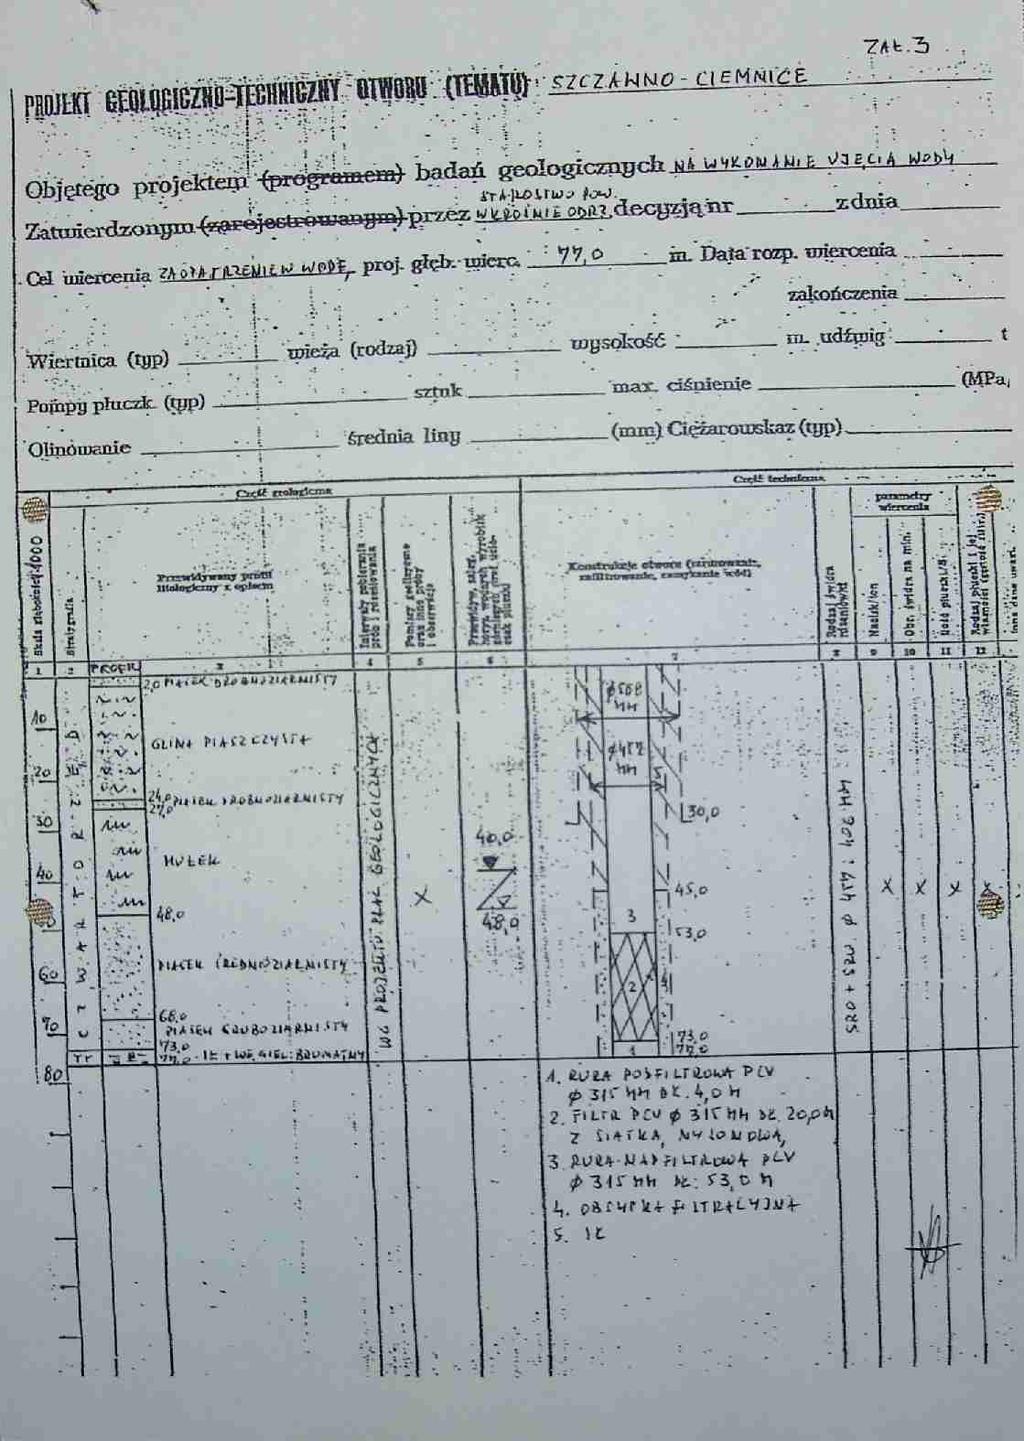 ZAŁ. 3
PROJEKT GEOLOGICZNO-TECHNICZNY OTWORU (TEMATU) SZCZAWNO - CIEMNICE
Objętego projektem (programem) badań geologicznych NA WYKONANIE UJĘCIA WODY
STAROSTWO POW.
Zatwierdzonym (zarejestrowanym) przez W KROŚNIE ODRZ. decyzją nr z dnia
Cel wiercenia ZAOPATRZENIE W WODĘ, proj. głęb. wierc. 77,0 m. Data rozp. wiercenia
zakończenia
Wiertnica (typ) wieża (rodzaj) wysokość m. udźwig t
Pompy płuczk. (typ) sztuk max. ciśnienie (MPa)
Olinowanie średnia liny (mm) Ciężarowskaz (typ)
Część geologiczna Część techniczna
Skala głębokości 1:1000
Stratygrafia
Przewidywany profil litologiczny z opisem
Interwały pobierania prób i rdzeniowania
Pomiary geofizyczne oraz inne próby i obserwacje
Konstrukcja otworu (zarurowanie, zafiltrowanie, zamykanie wód)
Rodzaj świdra rdzeniówki
parametry wiercenia
Nacisk/ton
Obr. świdra na min.
Ilość płuczki/S.
Rodzaj płuczki i jej własności
Inne dane uwagi
1 2 PROFIL 3 4 5 6 7 8 9 10 11 12
2,0 PIASEK DROBNOZIARNISTY
ø 508 MM
10
GLINA PIASZCZYSTA
ø 457 MM
20
24,0 PIASEK DROBNOZIARNISTY
27,0
30
30,0
40,0
MUŁEK
40
45,0
48,0
48,0
3
53,0
PIASEK ŚREDNIOZIARNISTY
60
2
4
68,0
70
PIASEK GRUBOZIARNISTY
73,0
73,0
77,0 IŁ + WĘGIEL BRUNATNY
1 77,0
80
CZWARTORZĘD
Tr
WG PROJEKTU PRAC GEOLOGICZNYCH
X
520 + ø 457 : 406 MM
X X X X
1. RURA PODFILTROWA PCV
ø 315 MM DŁ. 4,0 M
2. FILTR PCV ø 315 MM DŁ. 20,0 M
Z SIATKĄ NYLONOWĄ
3. RURA NADFILTROWA PCV
ø 315 MM DŁ: 53,0 M
4. OBSYPKA FILTRACYJNA
5. IŁ